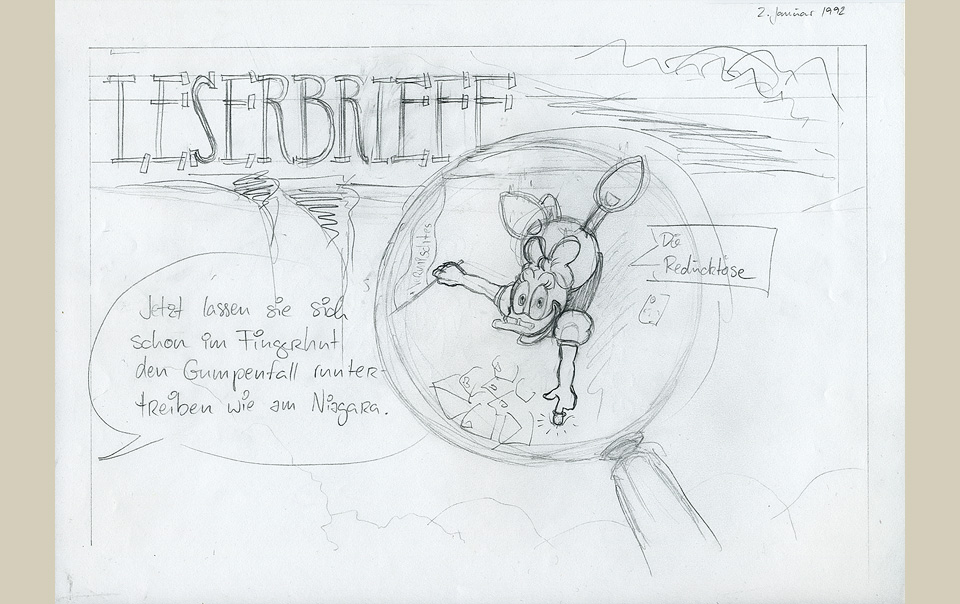 2. Januar 1992
LESERBRIEFE
Jetzt lassen sie sich
schon im Fingerhut
den Gumpenfall runter-
treiben wie am Niagara.
Die
Redücktöse